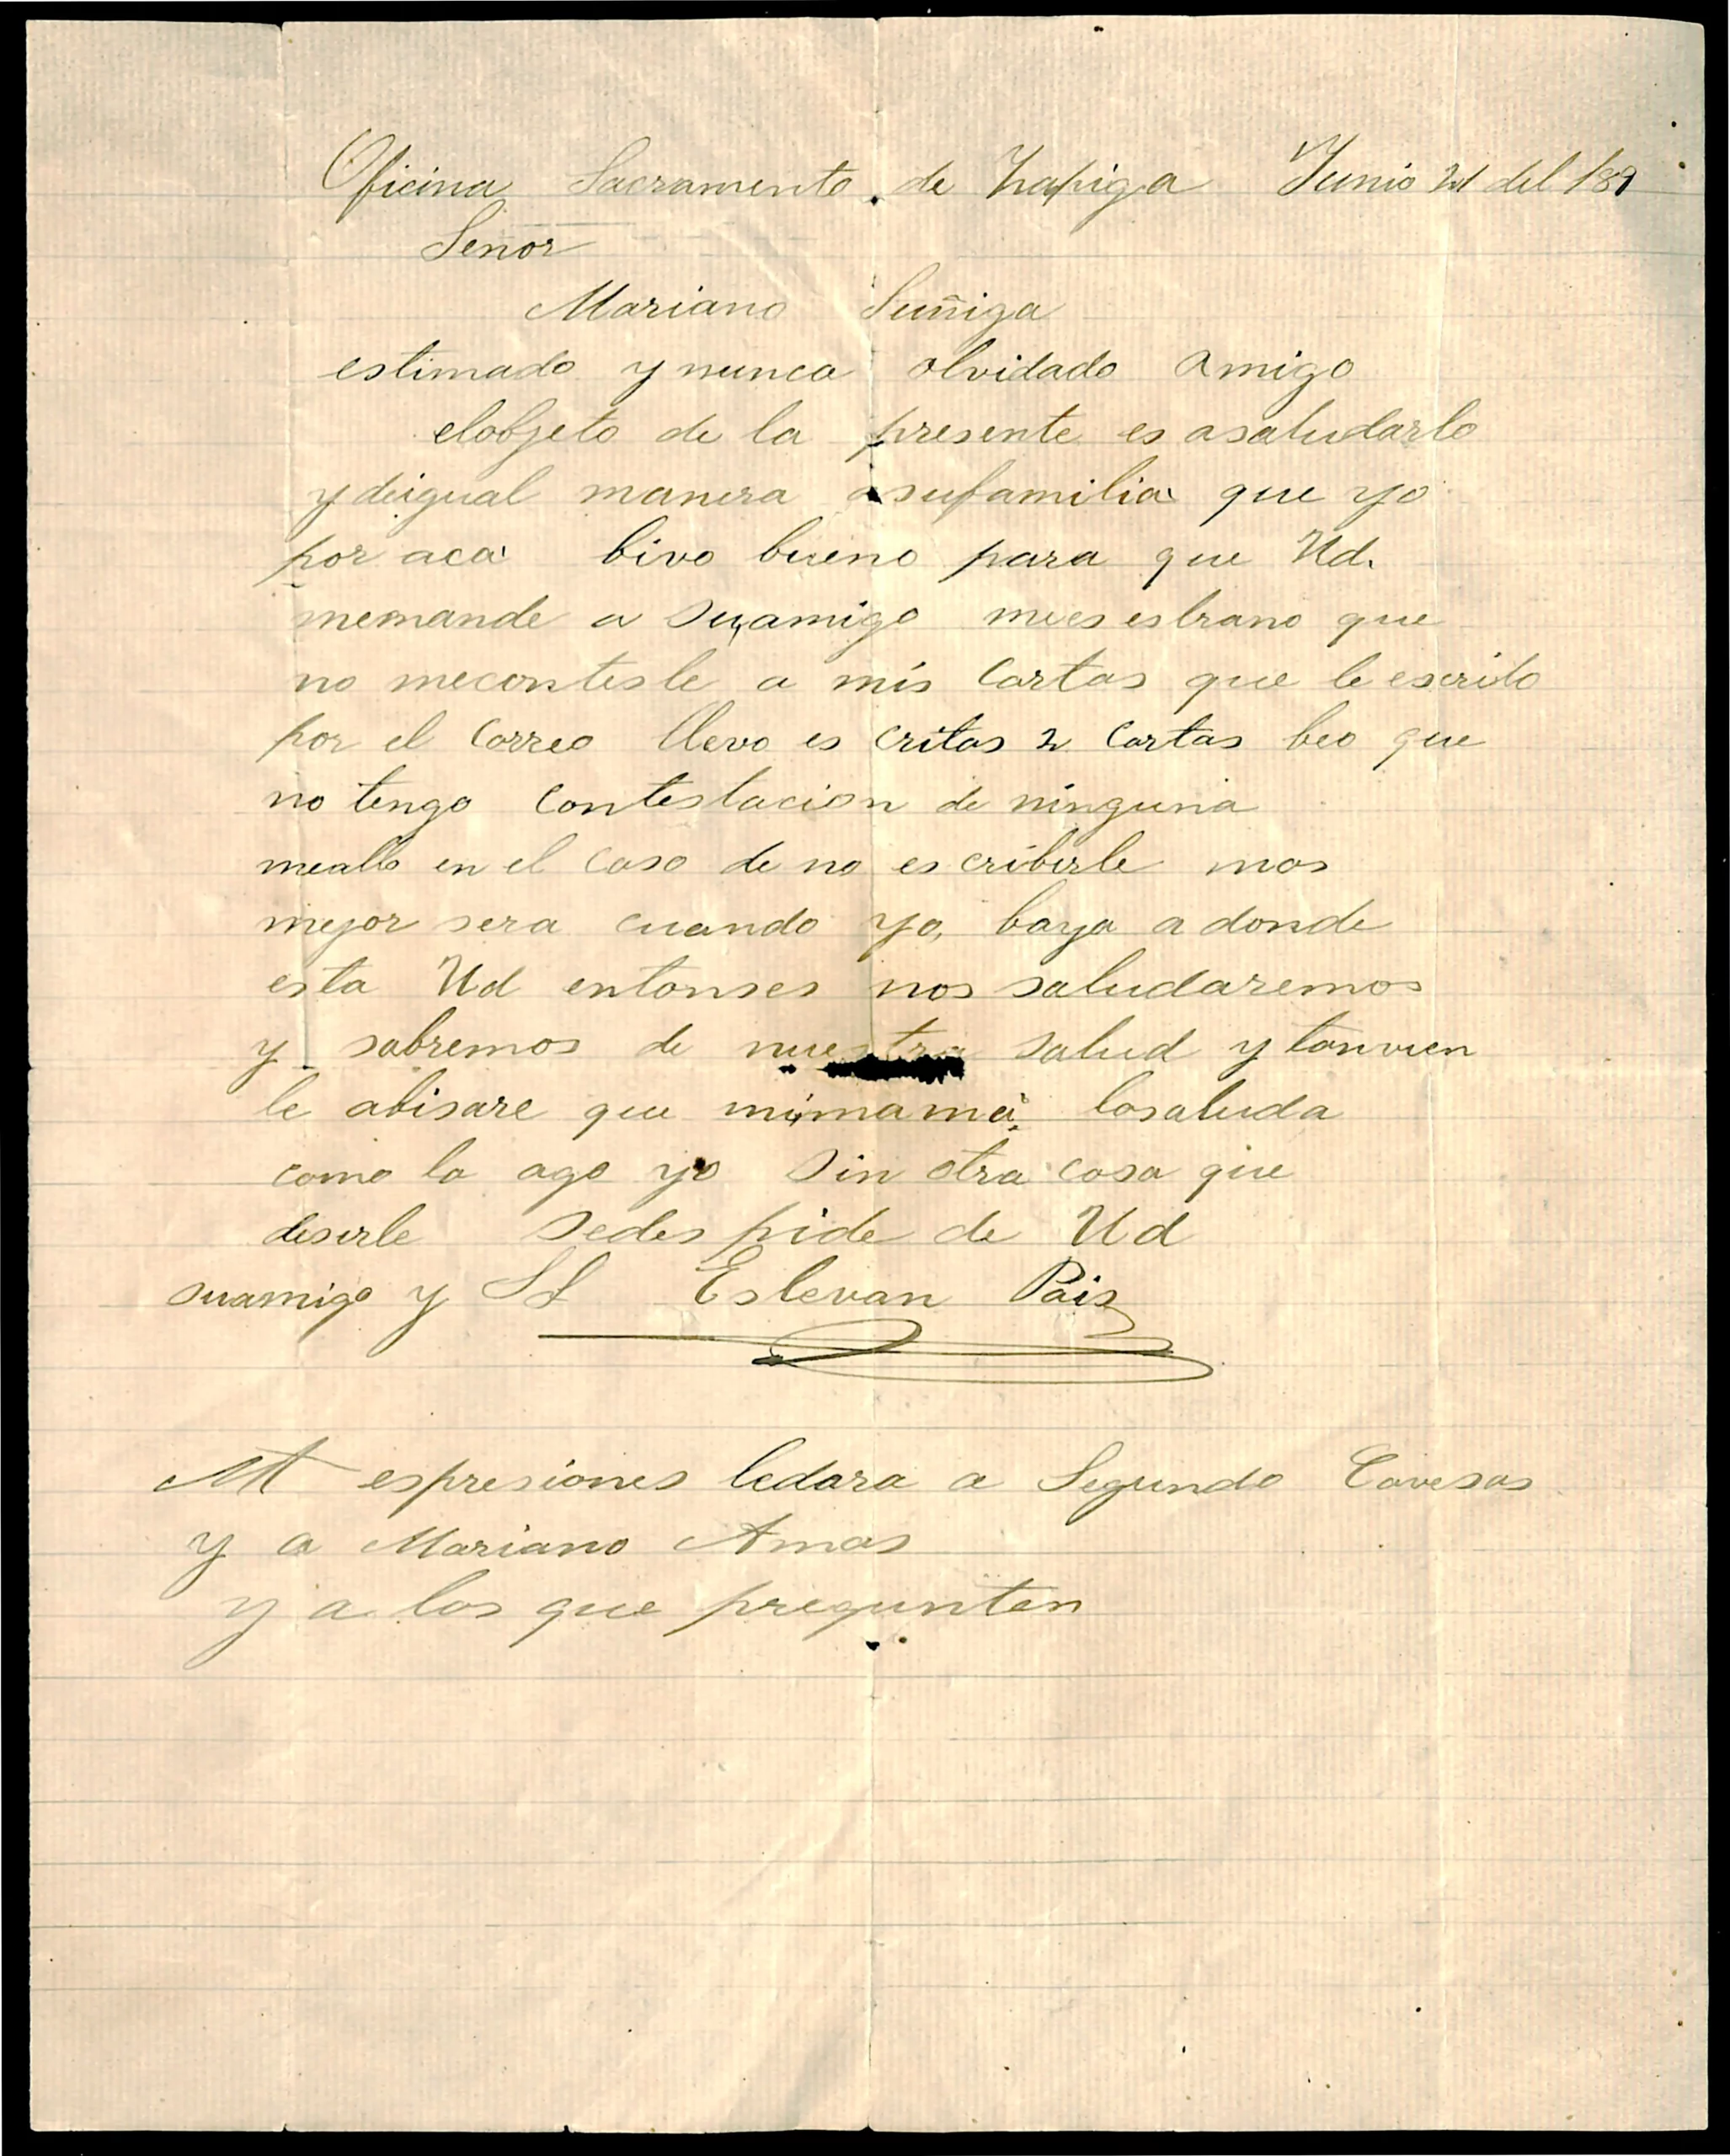 Oficina Sacramento de Zapiga Junio 21 del 189
Señor
Mariano Suñiga
estimado y nunca olvidado amigo
elobjeto de la presente es asaludarlo
y deigual manera asufamilia que yo
por aca bivo bueno para que Ud.
memande a suamigo mees estrano que
no meconteste a mis cartas que le escrito
por el correo llevo es critas 2 cartas beo que
no tengo contestacion de ninguna
meallo en el caso de no es cribirle mas
mejor sera cuando yo, baya a donde
esta Ud entonses nos saludaremos
y sabremos de nuestra salud y tanvien
le abisare que mimamá losaluda
como lo ago yo sin otra cosa que
desirle sedes pide de Ud
suamigo y SS Estevan Pais
espresiones ledara a Segundo Cavesas
y a Mariano Amas
y a los que pregunten